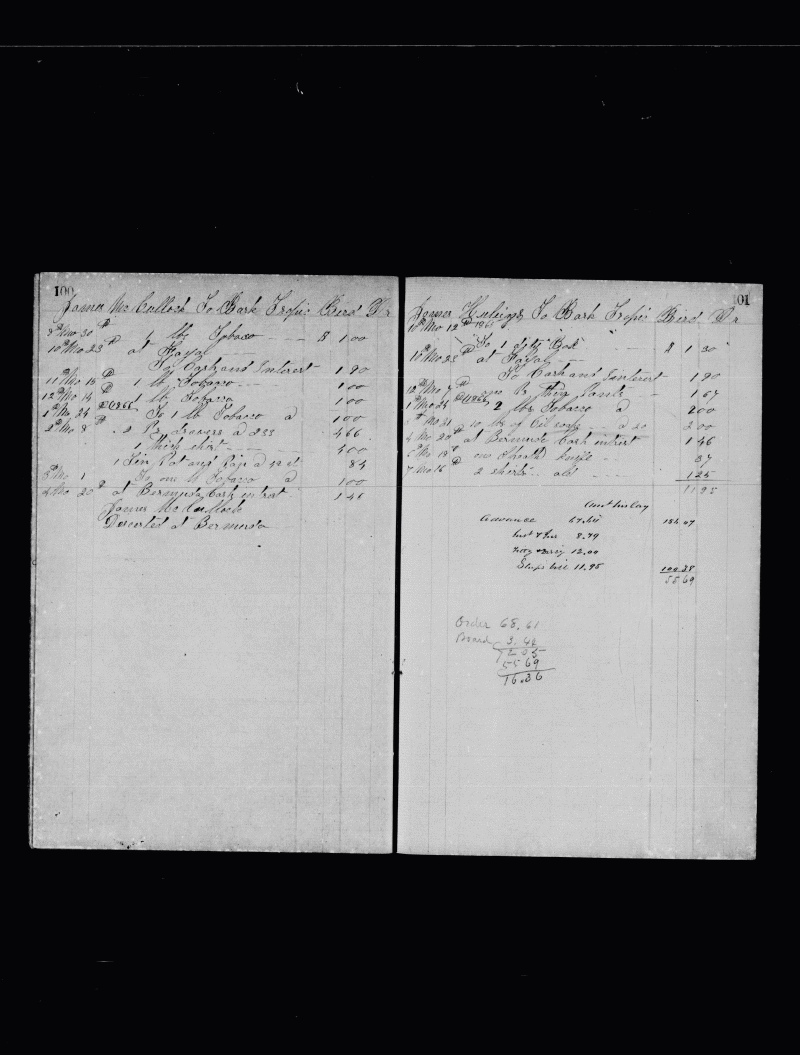 100
James McCulloch To Bark Tropic Bird Dr
9th Mo 30th 1 lbs Tobacco - - - $ 1 00
10th Mo 23d at Fayal
To Cash and Interest 1 90
11th Mo 13th 1 lb Tobacco - - 1 00
12th Mo 14th 1 lb Tobacco 1 00
1st Mo 24th 1866 To 1 lb Tobacco a 1 00
2d Mo 8th 2 Pr drawers a 233 4 66
1 Thick shirt - - - 4 00
1 Tin Pot and Pan a 42 ct 84
3d Mo 1 To one lb Tobacco a 1 00
4 Mo 20th at Bermuda Cash intrst 1 46
James McCullock
Deserted at Bermuda
101
James To Bark Tropic Bird Dr
10th Mo 12th 1865
To 1 ditty Box - - $ 1 30
10th Mo 23d at Fayal - - -
To Cash and Interest 1 90
12th Mo one Pr Thin Pants - 1 67
1st Mo 24 1866 2 lbs Tobacco a 2 00
Mo 21 10 lbs of a 20 2 00
4 Mo 20th at Bermuda Cash intrest 1 46
Mo 13th one Sheath knife - - 37
7 Mo 16th 2 shirts old - - - 1 25
11 95
Amt his lay
Advance 184.07
8.79
12.00
Ships bill 11.95 100 38
55 69
Order 68.61
Board 3.44
72 05
55 69
16.36